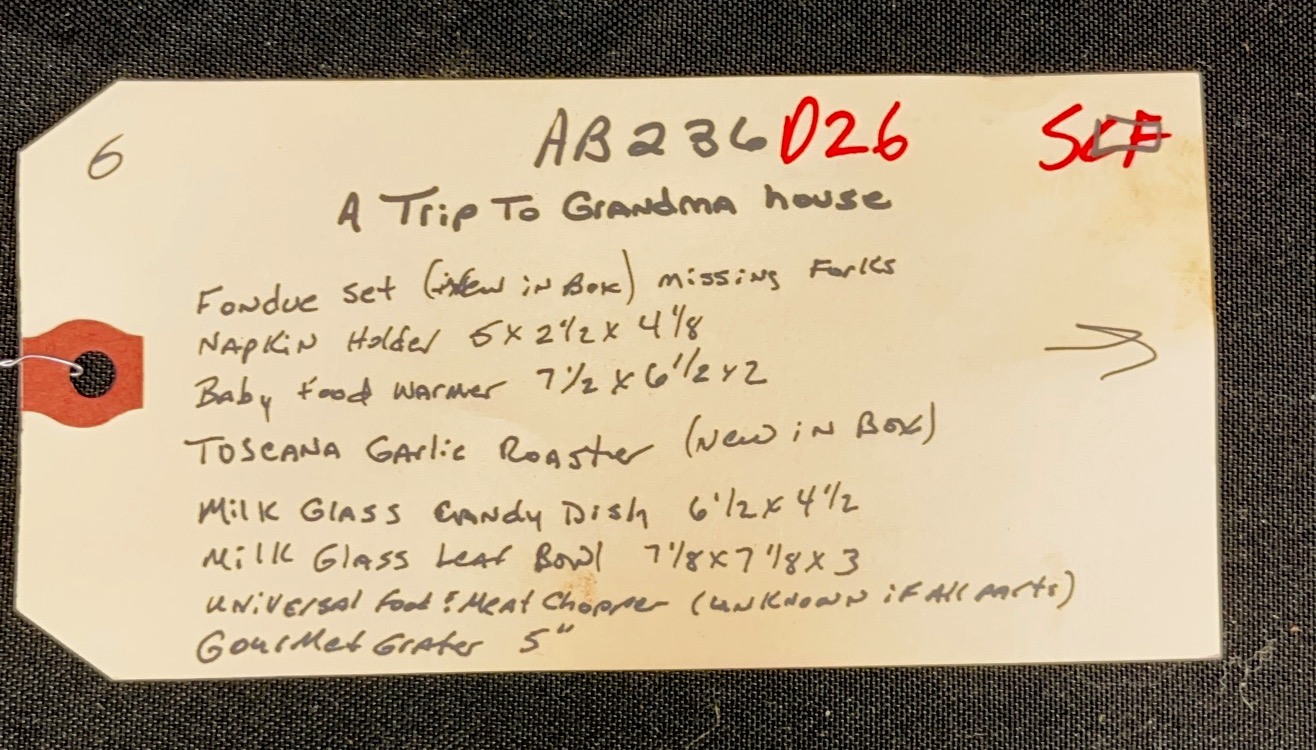 6
AB236 D26 SCF
A Trip To Grandma house
Fondue Set (New in Box) missing Forks
Napkin Holder 5 x 2 1/2 x 4 1/8
Baby Food Warmer 7 1/2 x 6 1/2 x 2
TOSCANA Garlic Roaster (New in Box)
Milk Glass Candy Dish 6 1/2 x 4 1/2
Milk Glass Leaf Bowl 7 1/8 x 7 1/8 x 3
Universal Food & Meat Chopper (unknown if All parts)
Gourmet Grater 5"